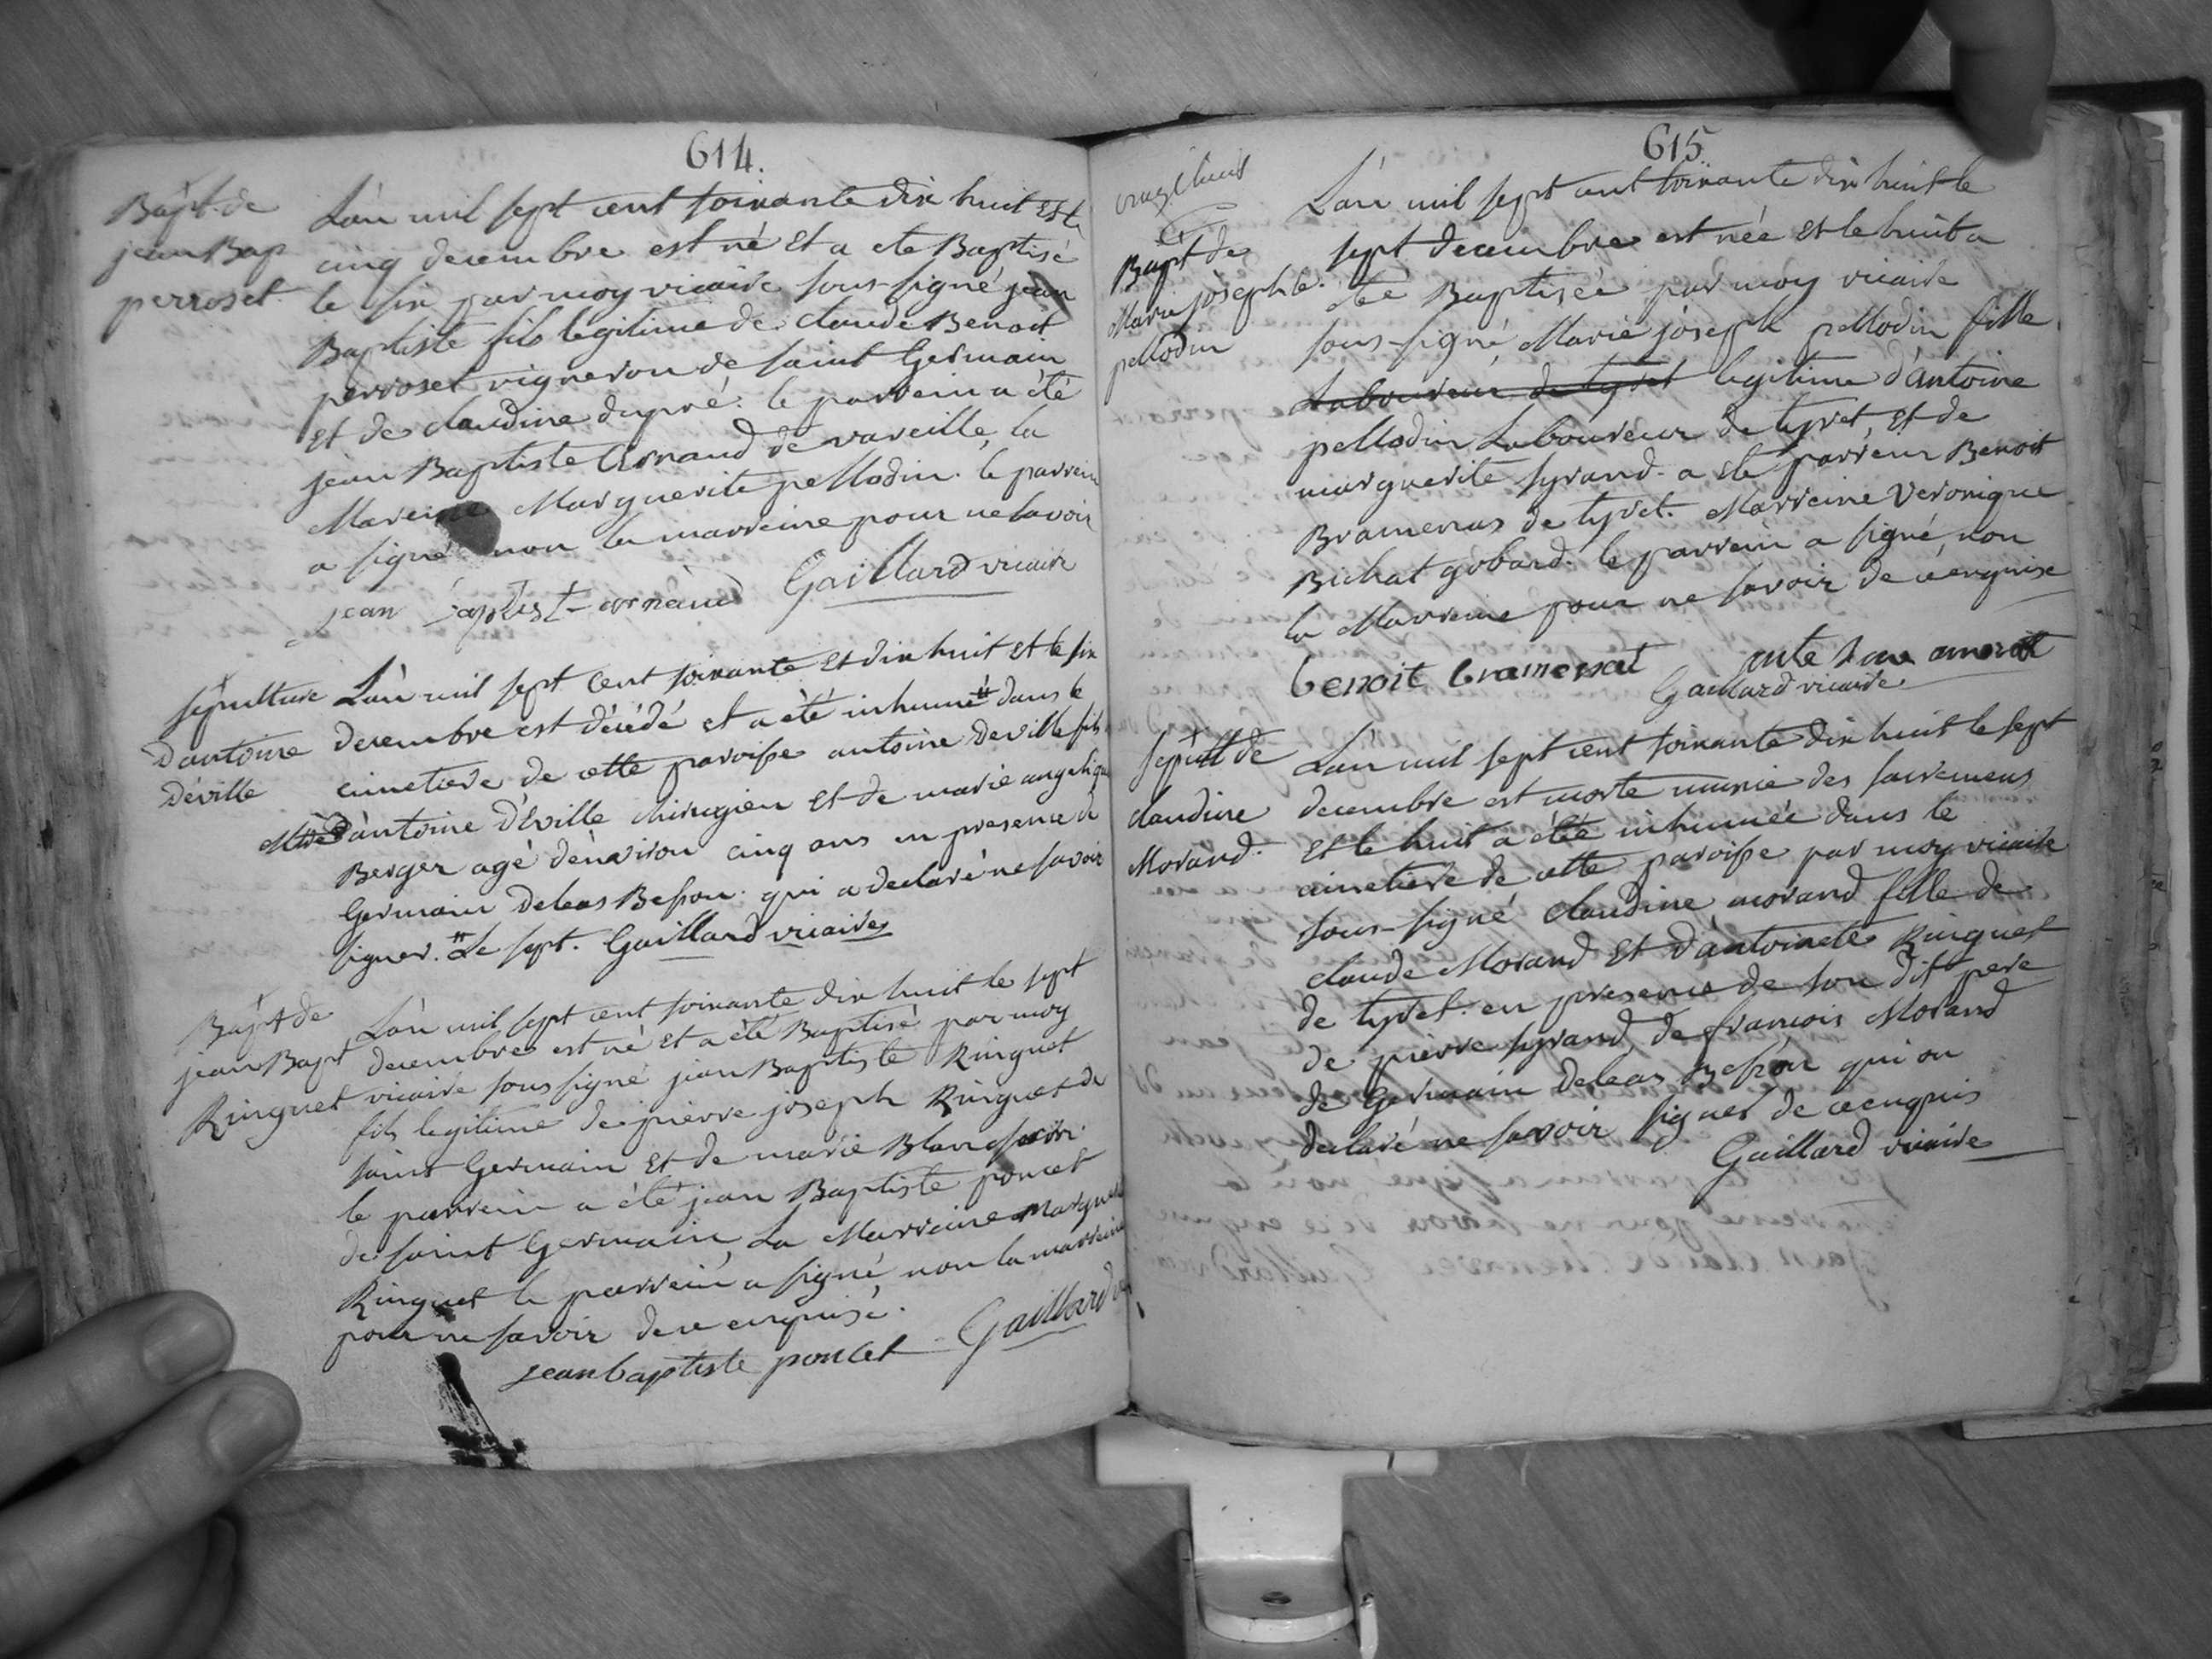 614.
Bapt. de
jean Bap
perroset
L'an mil sept cent soixante dix huit Et le
cinq decembre est né Et a ete Baptisé
le six par moy vicaire sous-signé jean
Baptiste fils legitime de claude Benoit
perroset vigneron de saint Germain
Et de claudine dupré. le parrein a été
jean Baptiste Arnaud de vareille, la
Mareine Marguerite pellodin. le parrein
a signé non la marreine pour ne savoir
jean baptist arnaud Gaillard vicaire
sepulture
D'antoine
Déville
L'an mil sept Cent soixante Et dix huit Et le six
decembre est décédé et a été inhumé # dans le
cimetiere de cette paroisse antoine Deville fils
d'antoine D'éville chirugien Et de marie angelique
Berger agé d'environ cinq ans en presence de
Germain Deleas Besson. qui a declaré ne savoir
signer. # Le sept. Gaillard vicaire
Bapt de
jean Bapt
Ringuet
L'an mil sept cent soixante dix huit le sept
decembre est né Et a été Baptisé par moy
vicaire sous signé jean Baptiste Ringuet
fils legitime de pierre joseph Ringuet de
saint Germain Et de marie
le parrein a été jean Baptiste poncet
de saint Germain, La Marreine
Ringuet le parrein a signé, non la marreine
pour ne savoir de ce enquise.
jean baptiste poncet Gaillard
615
Bapt de
Marie josephe
pellodin
L'an mil sept cent soixante dix huit le
sept decembre est née Et le huit a
été Baptisée par moy vicaire
sous-signé, Marie joseph pellodin fille
Laboureur de tyret legitime d'antoine
pellodin Laboureur de tyret, Et de
marguerite syrand. a été parrein Benoit
Bramerras de tyret. Marreine Veronique
Bichat gobard. le parrein a signé, non
la Marreine pour ne savoir de ce enquise
benoit
Gaillard vicaire
sepult de
claudine
Morand.
L'an mil sept cent soixante dix huit le sept
decembre est morte munie des sacremens
Et le huit a été inhumée dans le
cimetiere de cette paroisse par moy vicaire
sous-signé claudine morand fille de
claude Morand Et d'antoinete Ringuet
de tyret. en presence de son dit pere
de pierre syrand, de francois Morand
de Germain Deleas Besson qui on
declaré ne savoir signer de ce enquis
Gaillard vicaire